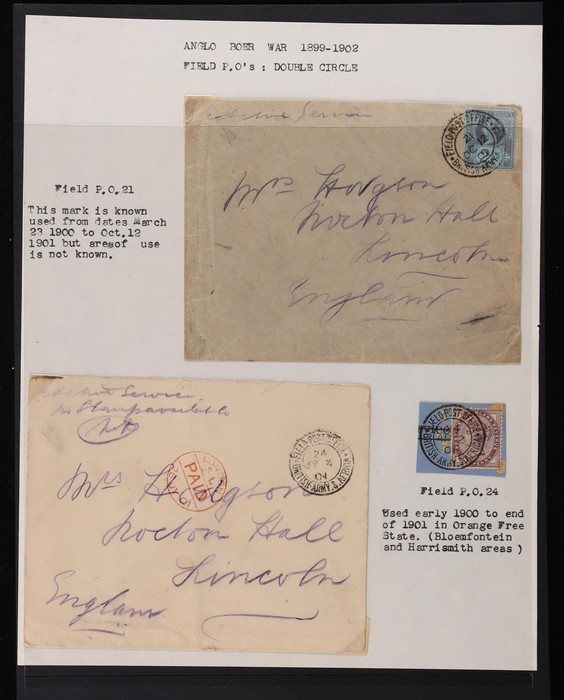 ANGLO BOER WAR 1899-1902
FIELD P.O's : DOUBLE CIRCLE
Active Service
FIELD POST OFFICE
BRITISH ARMY
Field P.O.21
This mark is known
used from dates March
23 1900 to Oct.12
1901 but areaof use
is not known.
Mrs Hodgson
Nocton Hall
Lincoln
England
Active Service
No Stamp available
Mrs Hodgson
Nocton Hall
Lincoln
England
PAID
FIELD POST OFFICE
24
4
01
BRITISH ARMY S. AFRICA
FIELD POST OFFICE
BRITISH ARMY
01
Field P.O.24
Used early 1900 to end
of 1901 in Orange Free
State. (Bloemfontein
and Harrismith areas )